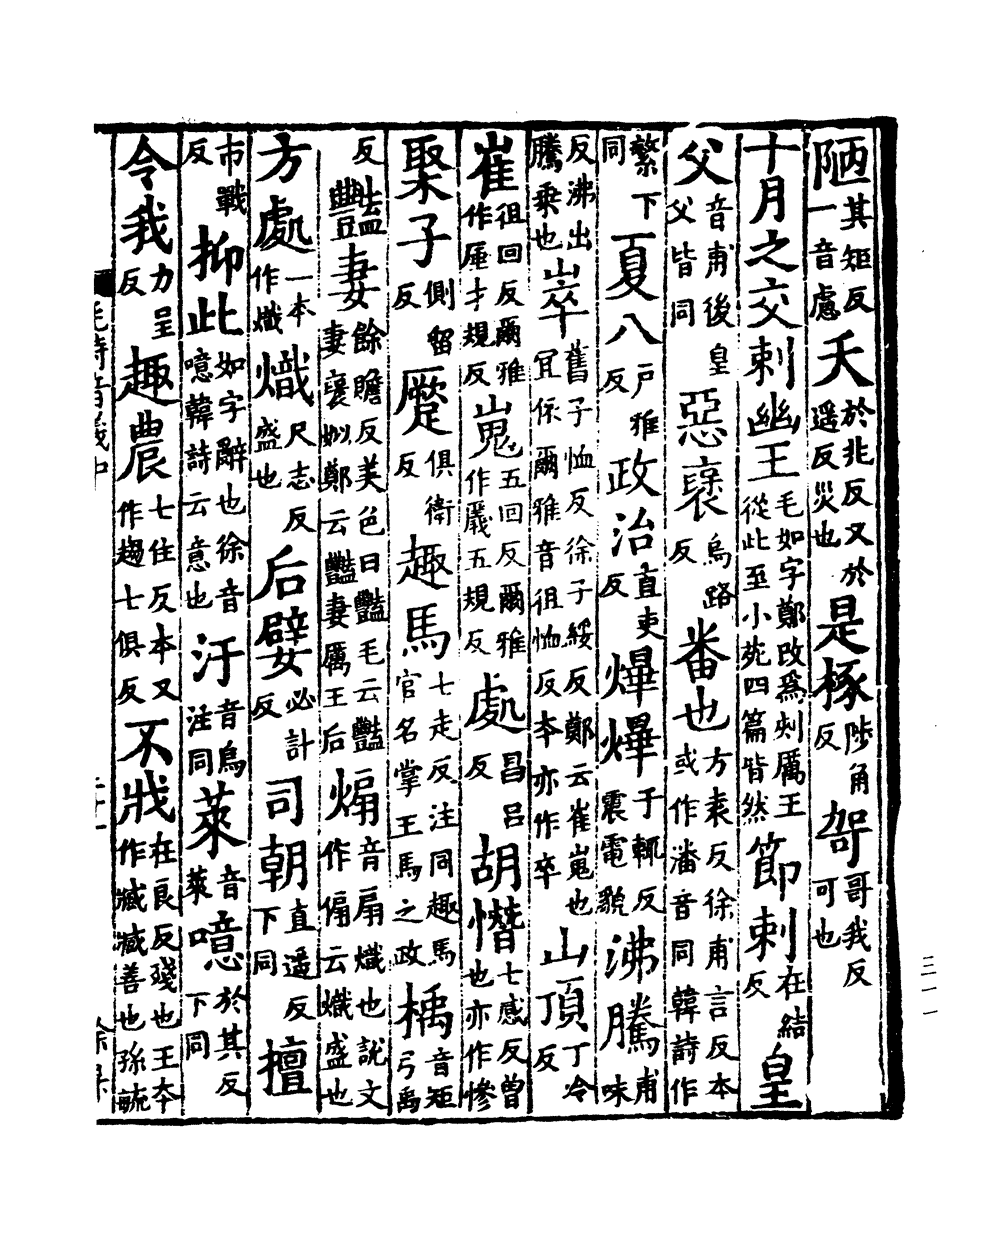 陋其矩反一音慮夭於兆反又於遥反災也是椓陟角反哿哥我反可也
十月之交刺幽王毛如字鄭改爲刺厲王從此至小宛四篇皆然節刺在結反皇
父音甫後皇父皆同惡襃烏路反番也方袁反徐甫言反本或作潘音同韓詩作
繁下同夏八戶雅反政治直吏反爗爗于輒反震電貌沸騰甫味
反沸出騰乗也崒舊子恤反徐子綏反鄭云崔嵬也宜依爾雅音徂恤反本亦作卒山頂丁冷反
崔徂回反爾雅作厜才規反嵬五回反爾雅作㕒五規反處昌呂反胡憯七感反曽也亦作慘
聚子側留反蹷俱衛反趣馬七走反注同趣馬官名掌王馬之政楀音矩弓禹
反豔妻餘贍反美色曰豔毛云豔妻襃姒鄭云豔妻厲王后煽音扇熾也説文作傓云熾盛也
方處一本作熾熾尺志反盛也后嬖必計反司朝直遥反下同擅
市戰反抑此如字辭也徐音噫韓詩云意也汙音烏注同萊音萊噫於其反下同
令我力呈反趣農七住反本又作趨七俱反不戕在良反殘也王本作臧臧善也孫毓
毛詩音義中